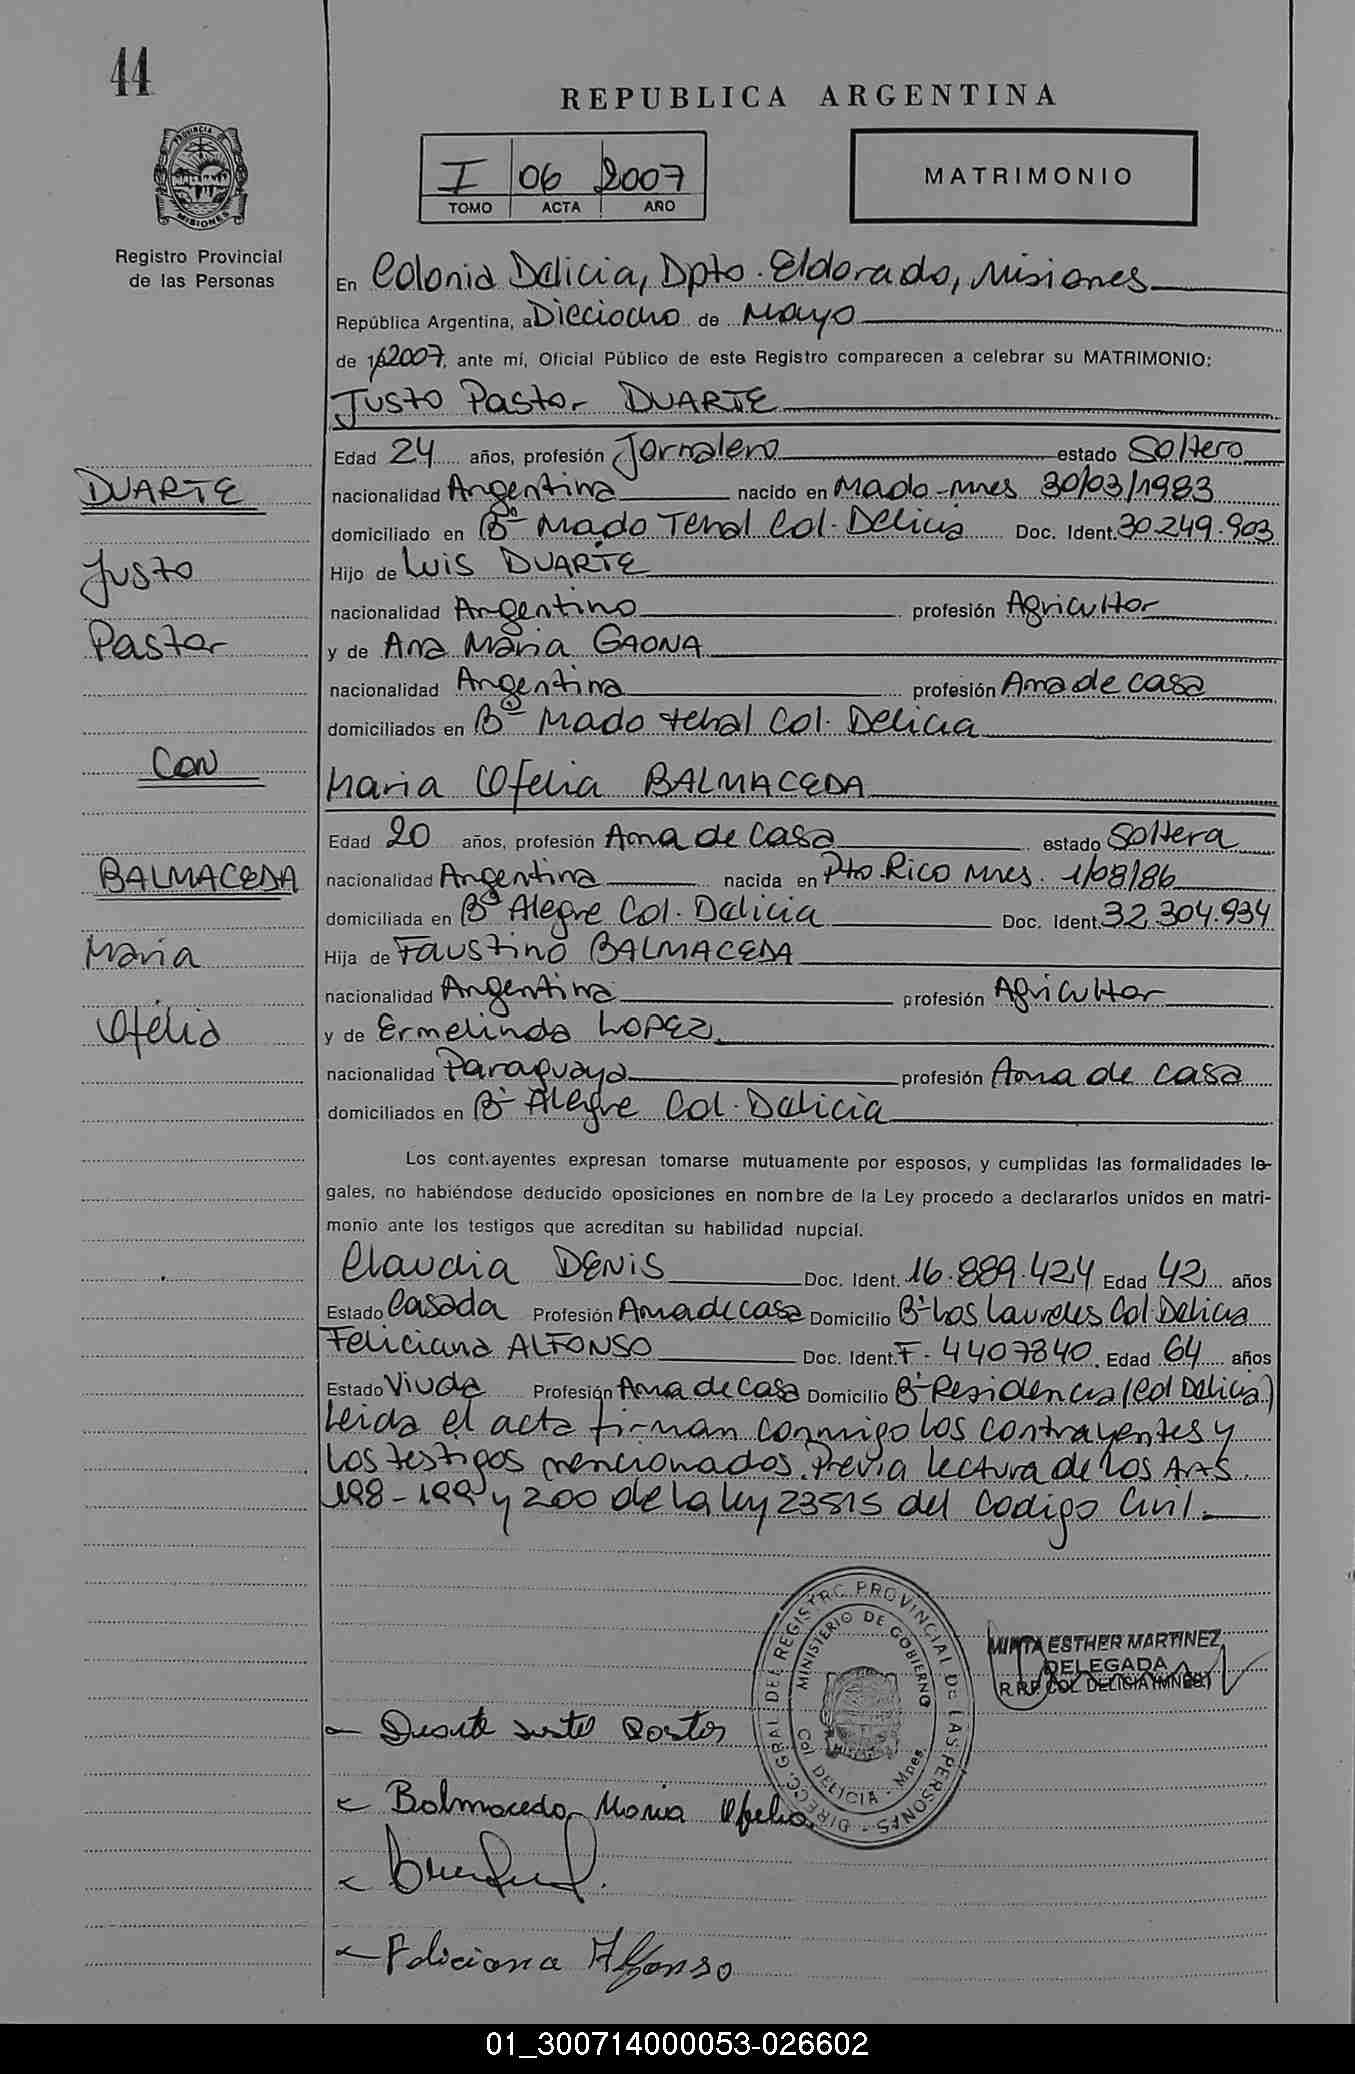 44
REPUBLICA ARGENTINA
PROVINCIA DE
MISIONES
I 06 2007
TOMO ACTA AÑO
MATRIMONIO
Registro Provincial
de las Personas
En Colonia Delicia, Dpto. Eldorado, Misiones
República Argentina, a Dieciocho de Mayo
de 2007, ante mí, Oficial Público de este Registro comparecen a celebrar su MATRIMONIO:
Justo Pastor DUARTE
Edad 24 años, profesión Jornalero estado Soltero
DUARTE
nacionalidad Argentina nacido en Mado-Mnes 30/03/1983
domiciliado en Bº Mado Tehal Col. Delicia Doc. Ident. 30.249.903
Justo
Hijo de Luis DUARTE
nacionalidad Argentino profesión Agricultor
Pastor
y de Ana Maria GAONA
nacionalidad Argentina profesión Ama de casa
domiciliados en Bº Mado tehal Col. Delicia
Con
Maria Ofelia BALMACEDA
Edad 20 años, profesión Ama de Casa estado Soltera
BALMACEDA
nacionalidad Argentina nacida en Pto. Rico Mnes. 1/08/86
domiciliada en Bº Alegre Col. Delicia Doc. Ident. 32.304.934
Maria
Hija de Faustino BALMACEDA
nacionalidad Argentina profesión Agricultor
Ofelia
y de Ermelinda LOPEZ
nacionalidad Paraguaya profesión Ama de casa
domiciliados en Bº Alegre Col. Delicia
Los cont.ayentes expresan tomarse mutuamente por esposos, y cumplidas las formalidades le-
gales, no habiéndose deducido oposiciones en nombre de la Ley procedo a declararlos unidos en matri-
monio ante los testigos que acreditan su habilidad nupcial.
Claudia DENIS Doc. Ident. 16.889.424 Edad 42 años
Estado Casada Profesión Ama de casa Domicilio Bº Los Laureles Col. Delicia
Feliciana ALFONSO Doc. Ident. F. 4407840. Edad 64 años
Estado Viuda Profesión Ama de Casa Domicilio Bº Residencia (Col Delicia)
Leida el acta firman conmigo los contrayentes y
los testigos mencionados. Previa lectura de los Arts
198-199 y 200 de la ley 23515 del Codigo Civil.
DIRECC. GRAL DEL REGISTRO PROVINCIAL DE LAS PERSONAS
MINISTERIO DE GOBIERNO
MISIONES
Col. DELICIA - Mnes.
MIRTA ESTHER MARTINEZ
DELEGADA
R.R.P. COL. DELICIA (MNES.)
Duarte Justo Pastor
Balmaceda Maria Ofelia
Feliciana Alfonso
01_300714000053-026602